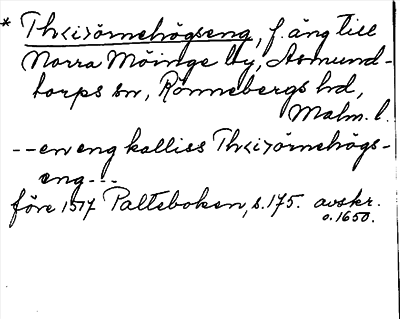 * Th<i>örnehögseng, f. äng till
Norra Möinge by, Asmund-
torps sn, Rönnebergs hd,
Malm. l.
-- en eng kalliss Th<i>örnehögs-
eng ---
före 1517 Palteboken, s. 175. avskr.
o. 1650.